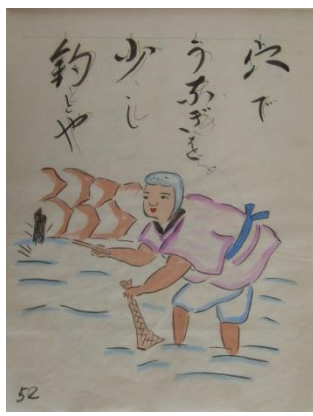 穴で
うなぎを
少し
釣とや
52